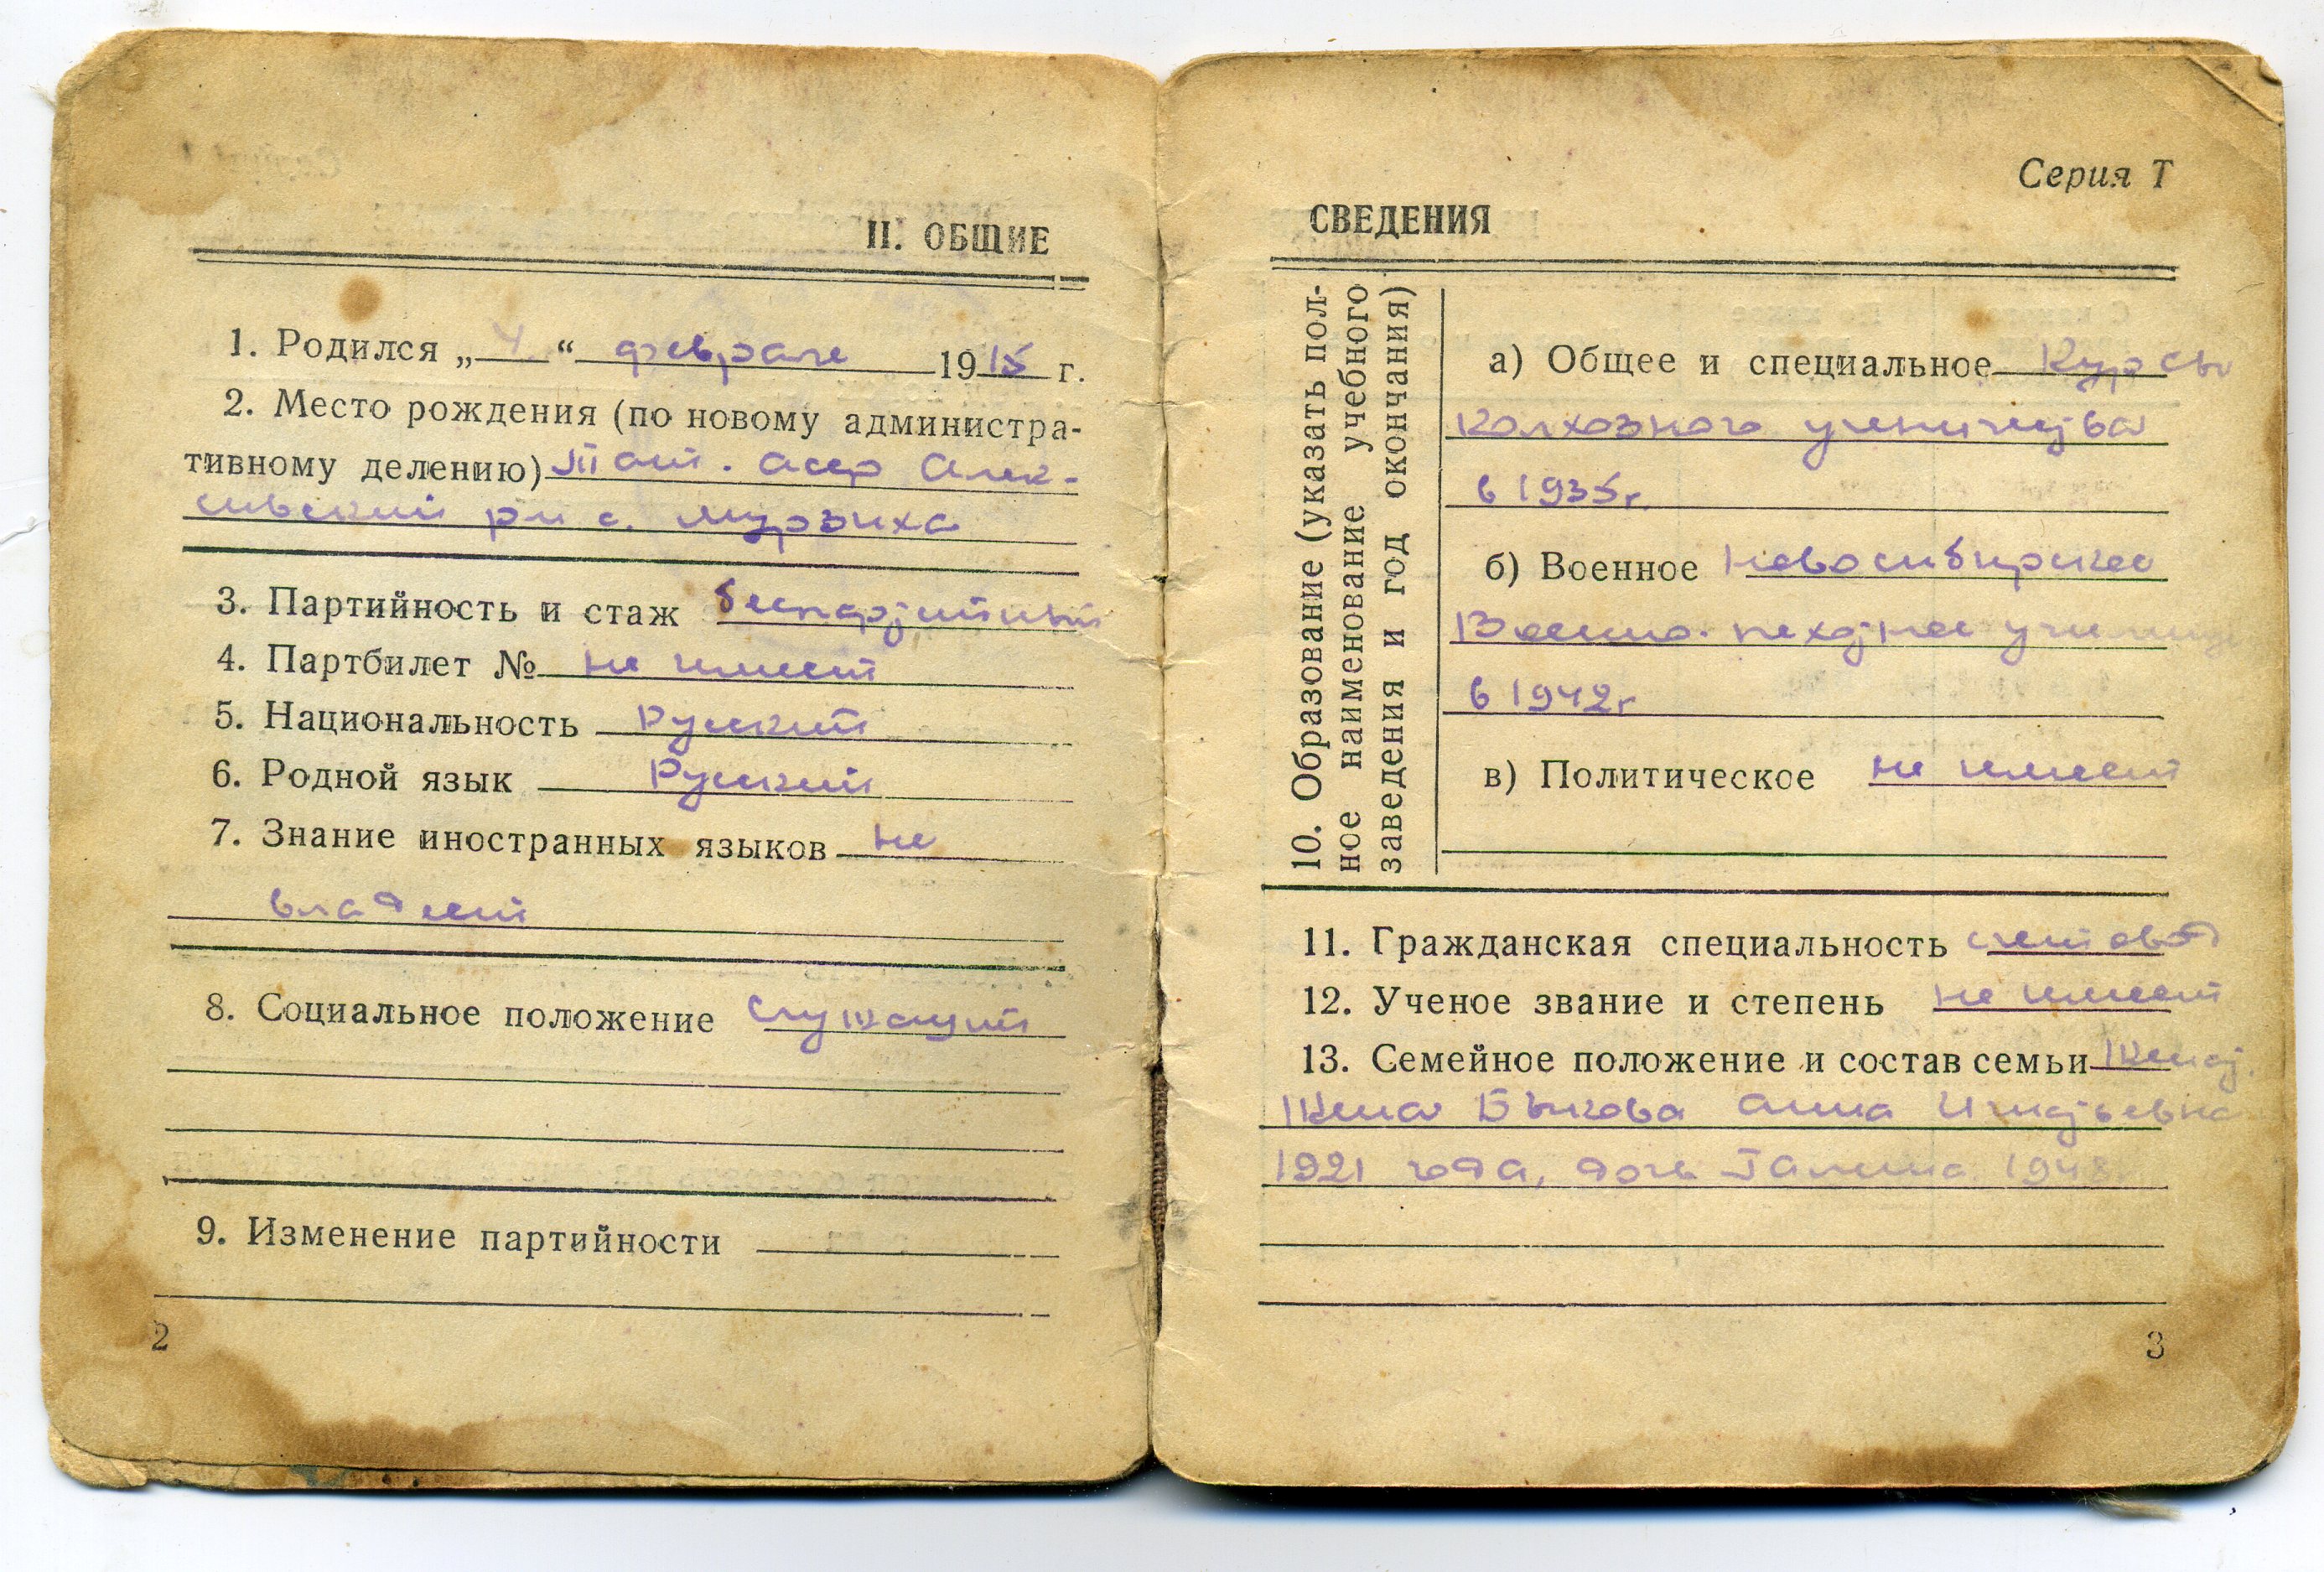 II. ОБЩИЕ
1. Родился „ 4 “ февраля 1915 г.
2. Место рождения (по новому администра-
тивному делению) Тат. асср Алек-
сеевский рн с. Мурзиха
3. Партийность и стаж беспартийный
4. Партбилет № не имеет
5. Национальность Русский
6. Родной язык Русский
7. Знание иностранных языков не
владеет
8. Социальное положение Служащий
9. Изменение партийности
2
Серия Т
СВЕДЕНИЯ
10. Образование (указать пол-
ное наименование учебного
заведения и год окончания)
а) Общее и специальное Курсы
колхозного ученичества
в 1935г.
б) Военное Новосибирское
Военно-пехотное училище
в 1942г
в) Политическое не имеет
11. Гражданская специальность счетовод
12. Ученое звание и степень не имеет
13. Семейное положение и состав семьи Женат.
Жена Быкова Анна Игнатьевна
1921 года, дочь Галина
3